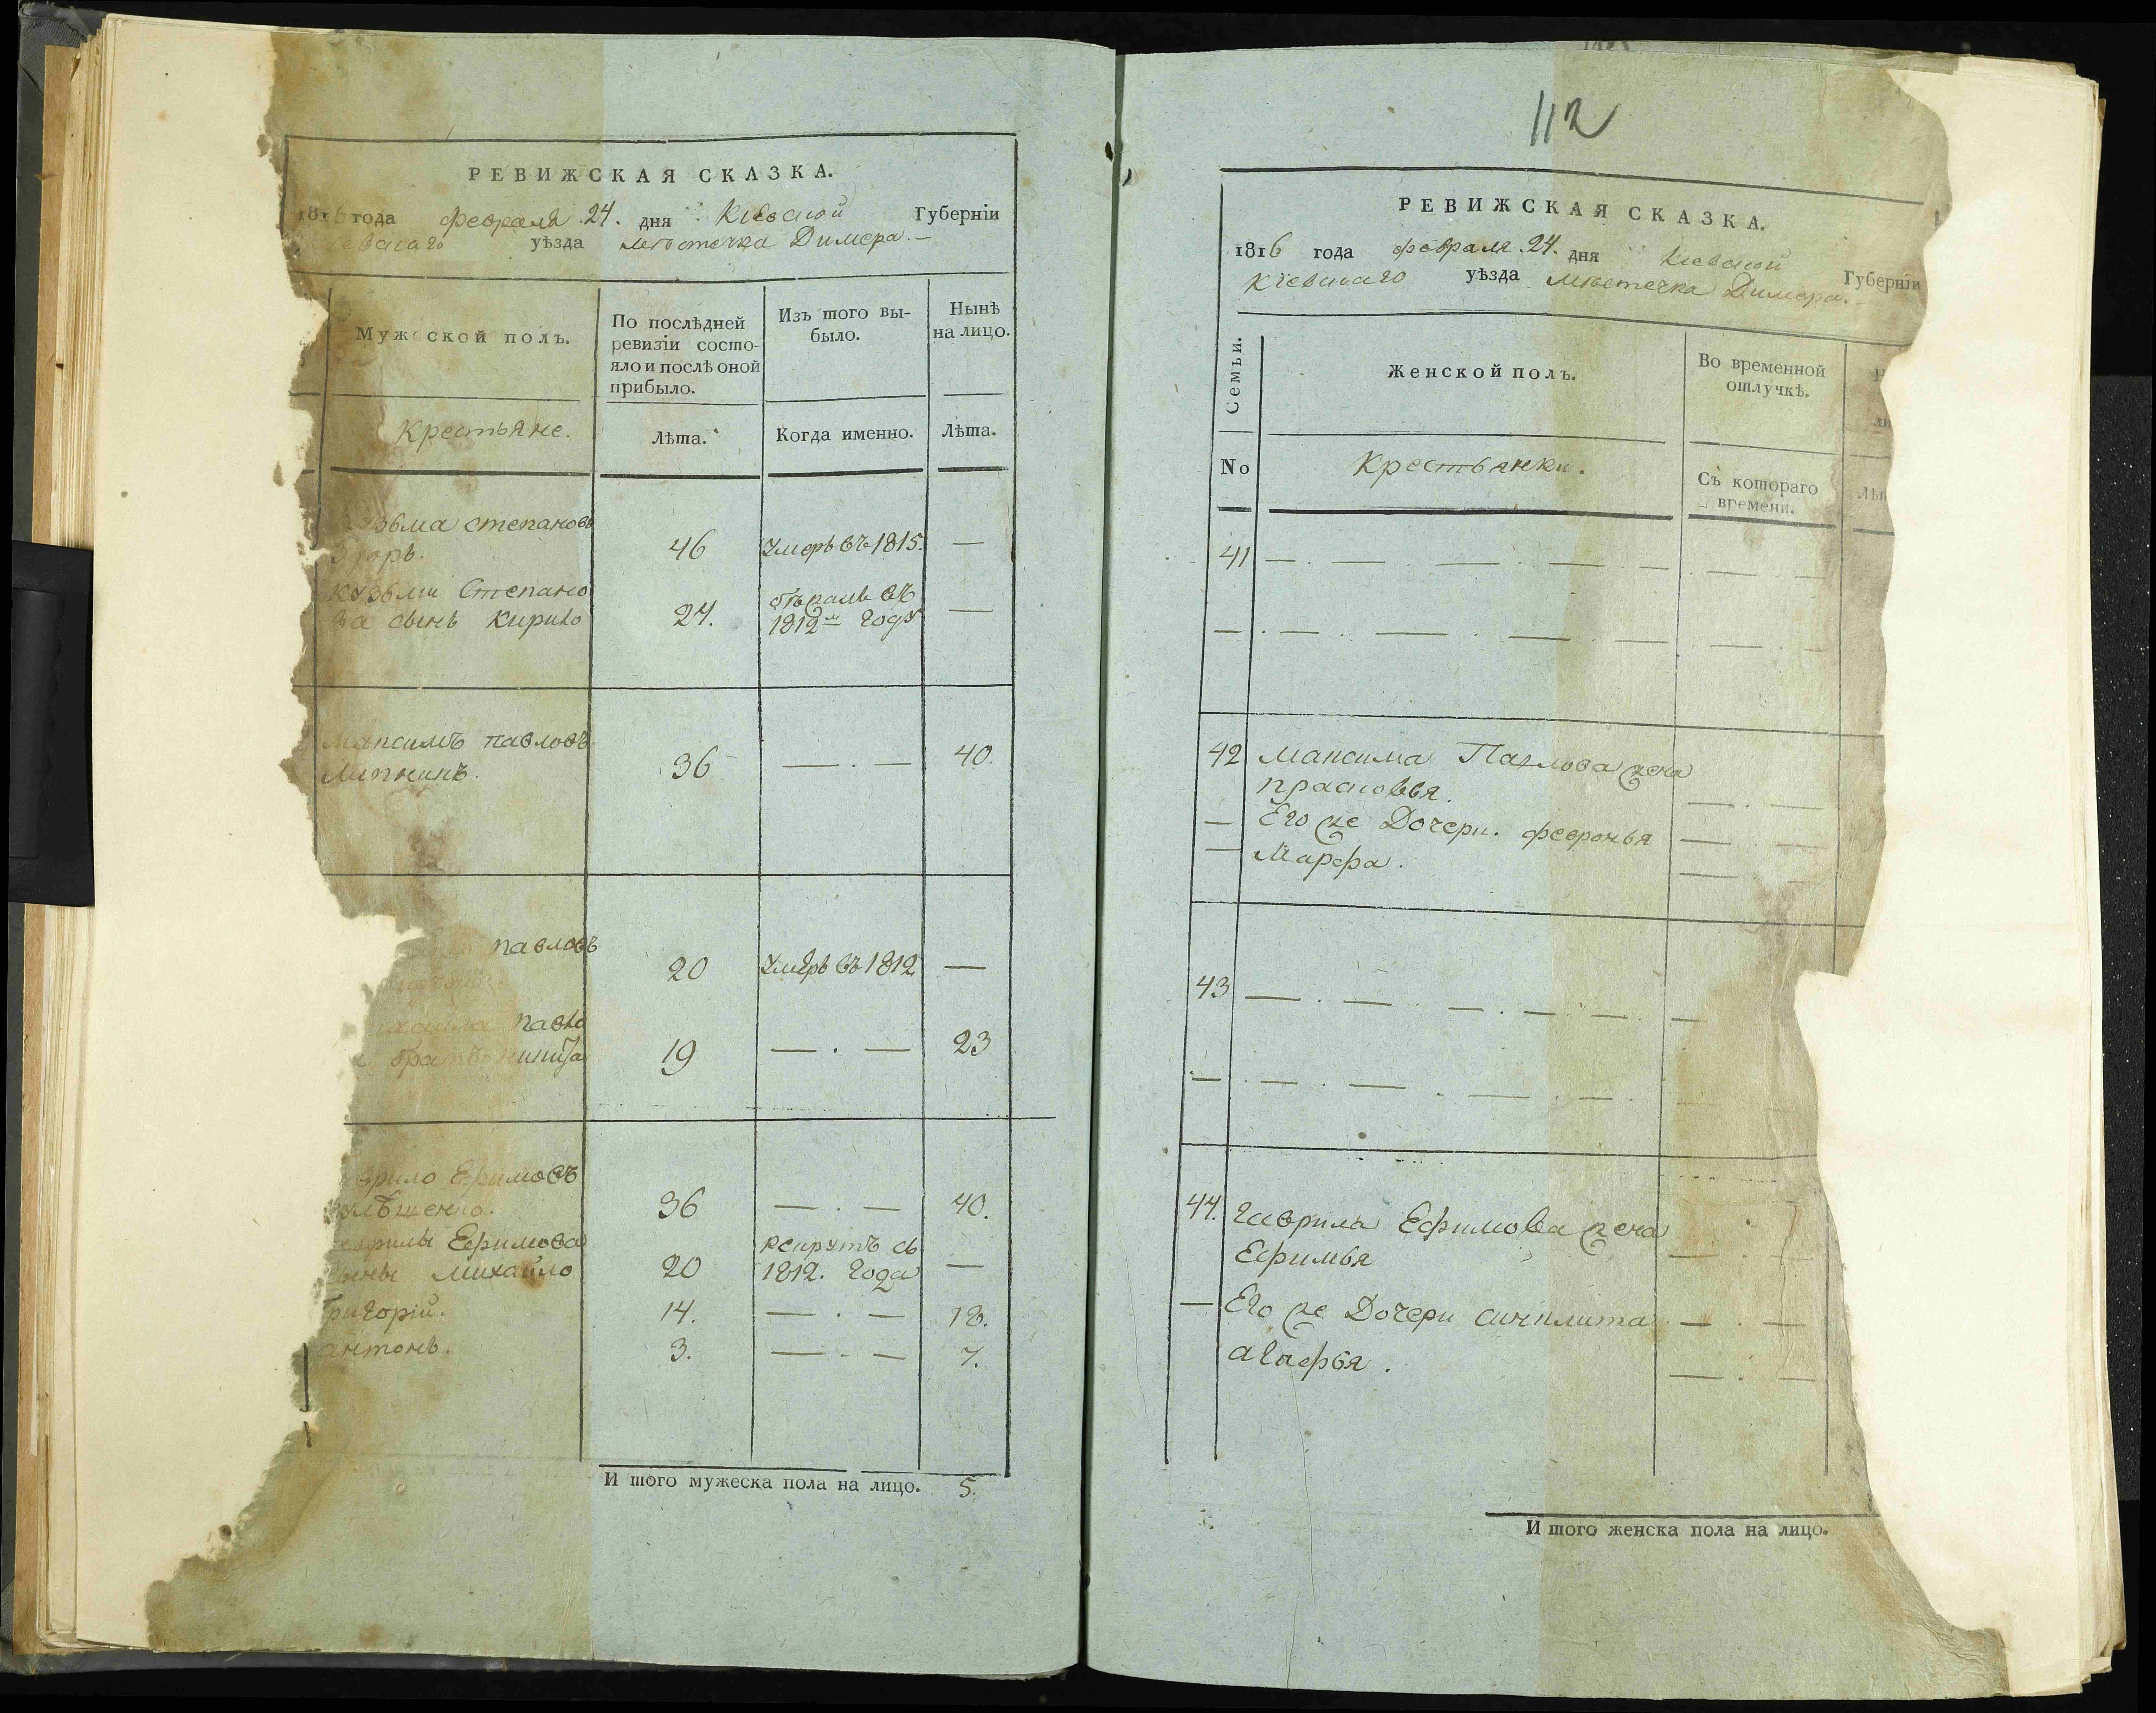 РЕВИЖСКАЯ СКАЗКА.
1816 года февраля 24. дня Кіевской Губерніи
Кіевскаго уѣзда мѣстечка Димера.
Мужеской полъ.
По послѣдней
ревизіи состо-
яло и послѣ оной
прибыло.
Изъ того вы-
было.
Нынѣ
на лицо.
Крестьяне.
Лѣта.
Когда именно.
Лѣта.
Кузьма степановъ
46 умеръ въ 1815. —
Кузьми Степано
ва сынъ Кирило 24. въ
1812м году —
Максимъ павловъ
36 — . — 40.
павловъ
20 умеръ въ 1812 —
павло
братъ 19 — . — 23
врило Ефимовъ
36 — . — 40.
врилы Ефимова
сыны Михайло 20 рекрутъ съ
1812. года —
Григорій. 14. — . — 18.
антонъ. 3. — . — 7.
И того мужеска пола на лицо. 5.
112
РЕВИЖСКАЯ СКАЗКА.
1816 года февраля 24. дня Кіевской Губерніи
Кіевскаго уѣзда мѣстечка Димера.
Семьи.
Женской полъ.
Во временной
отлучкѣ.
Н
ли
No
Крестьянки.
Съ котораго
времени.
Лѣт
41 — . — . — . — . —
— . — . — . — . —
42 Максима Павлова жена
прасковья. — . —
— Его же Дочери. февронья — . —
— Марфа. — . —
43 — . — . — . — . —
— . — . — . — . —
44. Гаврила Ефимова жена
Ефимья — . —
— Его же Дочери синклита — . —
агафья. — . —
И того женска пола на лицо.